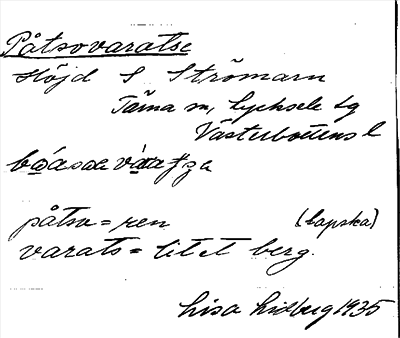 Påtsovaratse
Höjd S Strömarn
Tärna sn, Lycksele lg
Västerbottens l
påtsu = ren (lapska)
varats = litet berg.
Lisa Lidberg 1935